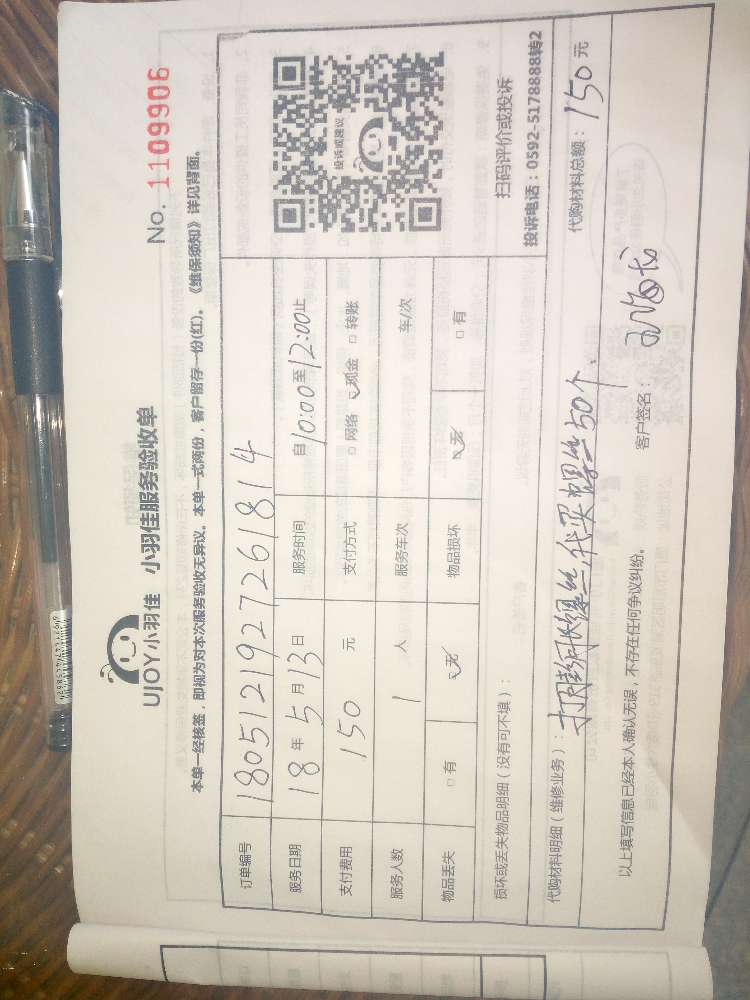 No. 1109906
UJOY小羽佳 小羽佳服务验收单
本单一经核签，即视为对本次服务验收无异议。本单一式两份，客户留存一份(红)。《维保须知》详见背面。
订单编号 180512192726 1814
服务日期 18 年 5 月 13 日 服务时间 自 10:00 至 12:00 止
支付费用 150 元 支付方式 □ 网络 ☑ 现金 □ 转账
服务人数 1 人 服务车次 车/次
物品丢失 □ 有 ☑ 无 物品损坏 ☑ 无 □ 有
投诉或建议
扫码评价或投诉
投诉电话：0592-5178888转2
损坏或丢失物品明细（没有可不填）：
代购材料明细（维修业务）： 螺丝,代买螺丝50个. 代购材料总额： 150 元
以上填写信息已经本人确认无误，不存在任何争议纠纷。 客户签名：